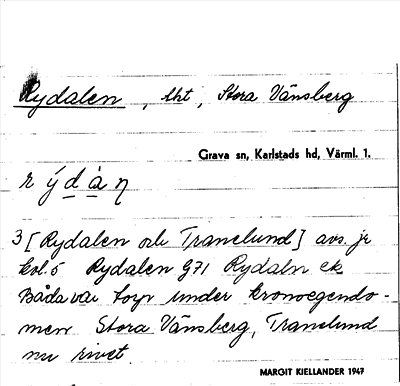 Rydalen, tht, Stora Vänsberg
Grava sn, Karlstads hd, Värml. 1.
r ý d à ņ
3 [Rydalen och Tranelund] avs. jr
kol. 5 Rydalen G71 Rydaln ek
Båda var torp under kronoegendo-
men Stora Vänsberg, Tranelund
nu rivet.
MARGIT KIELLANDER 1947